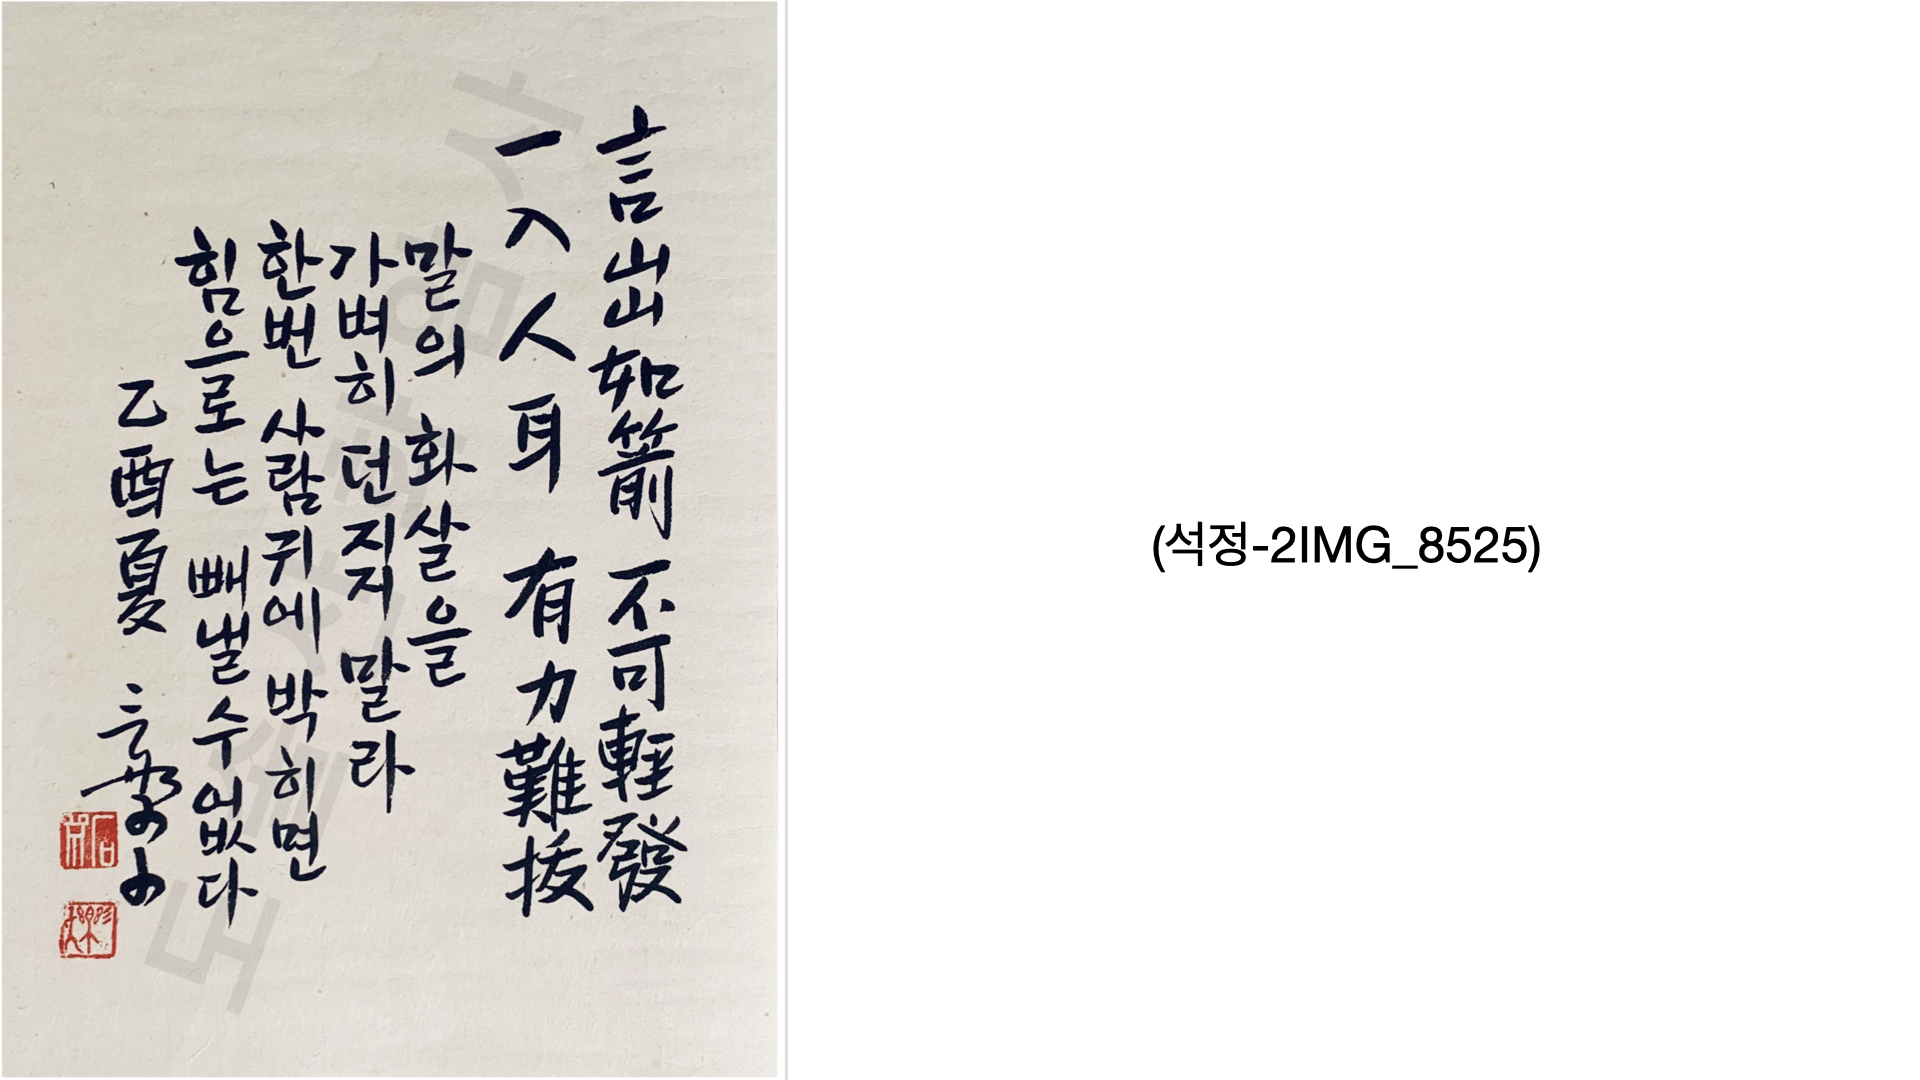 言出如箭 不可輕發
一入人耳 有力難拔
말의 화살을
가벼히 던지지 말라
한번 사람귀에 박히면
힘으로는 빼낼수없다
乙酉夏
(석정-2IMG_8525)